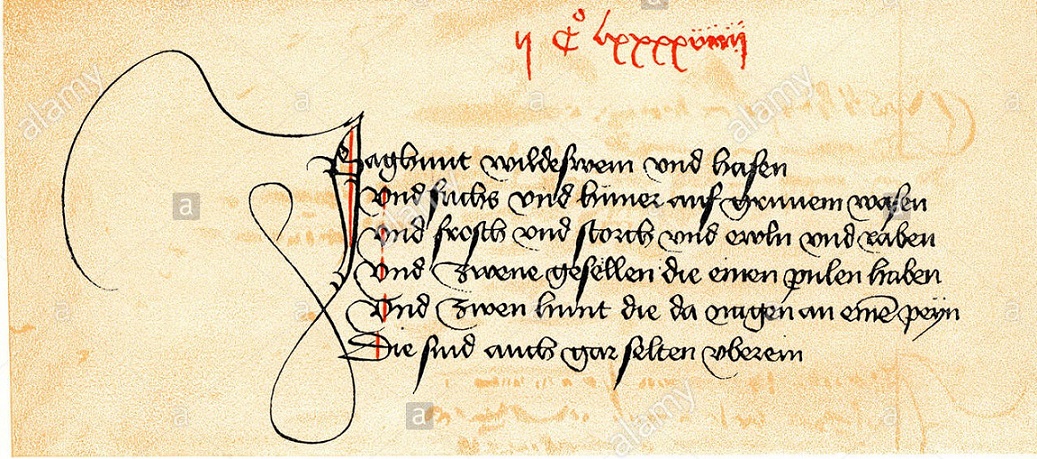 ij Cͦ lxxxxviiij
Jaghunt wildeswein vnd hasen
Vnd fuchs vnd huner auf grunem wasen
Vnd frosch vnd storch vnd ewln vnd raben
Vnd Zwene gesellen die einen pulen haben
Vnd Zwen hunt die da nagen an einē peyn
Die sind auch gar selten vberein
alamy